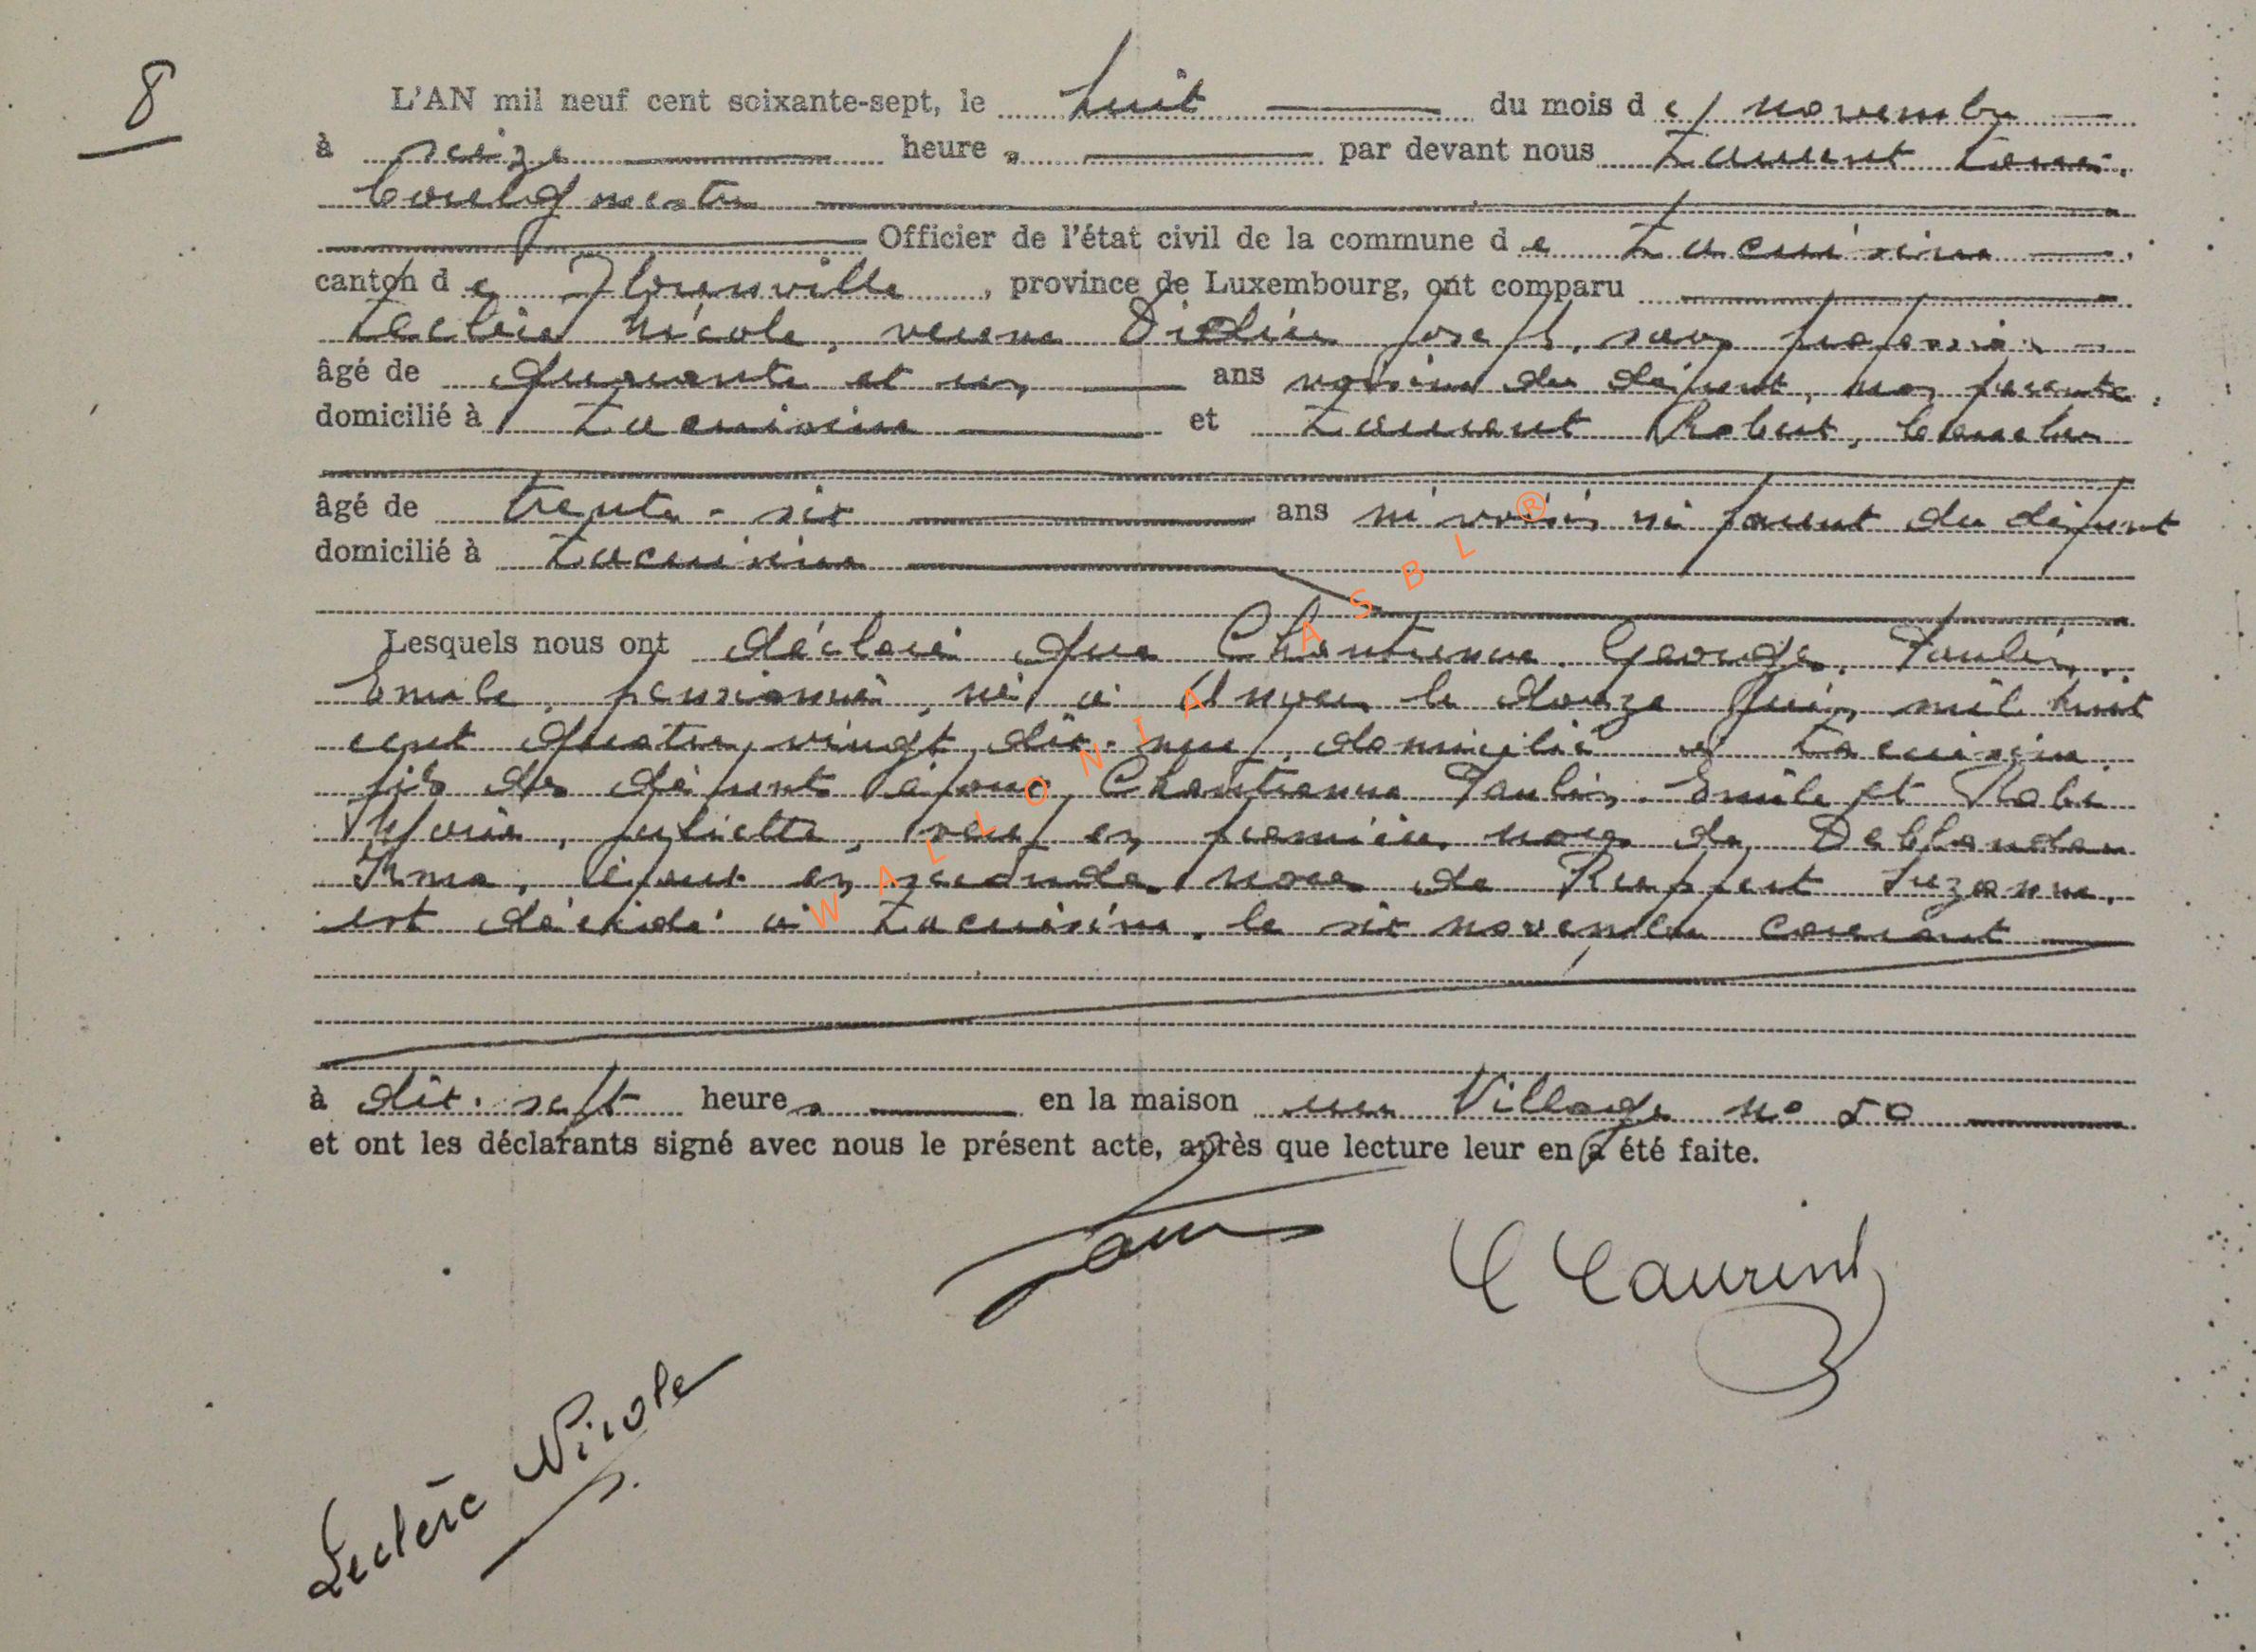 8
L'AN mil neuf cent soixante-sept, le huit du mois de novembre
à seize heures par devant nous Laurent Louis,
Bourgmestre
Officier de l'état civil de la commune de Lacuisine
canton de Florenville, province de Luxembourg, ont comparu
Leclère Nicole, veuve Didier Joseph, sans profession
âgé de quarante et un ans voisine du défunt, non parente,
domicilié à Lacuisine et Laurent Robert, 
âgé de trente-six ans ni voisin ni parent du défunt
domicilié à Lacuisine
Lesquels nous ont déclaré que Chantrenne Georges, Paulin,
Emile, pensionné, né à le douze juin mil huit
cent quatre-vingt-dix-neuf, domicilié à Lacuisine,
fils des défunts époux Chantrenne Paulin, Emile et
Marie, Juliette, veuf en premières noces de Deblander
Irma, époux en secondes noces de Ruppert Suzanne,
est décédé à Lacuisine, le six novembre courant
à dix-sept heures en la maison rue Village no 50
et ont les déclarants signé avec nous le présent acte, après que lecture leur en a été faite.
L Laurent
Leclère Nicole
WALLONIA ASBL ®